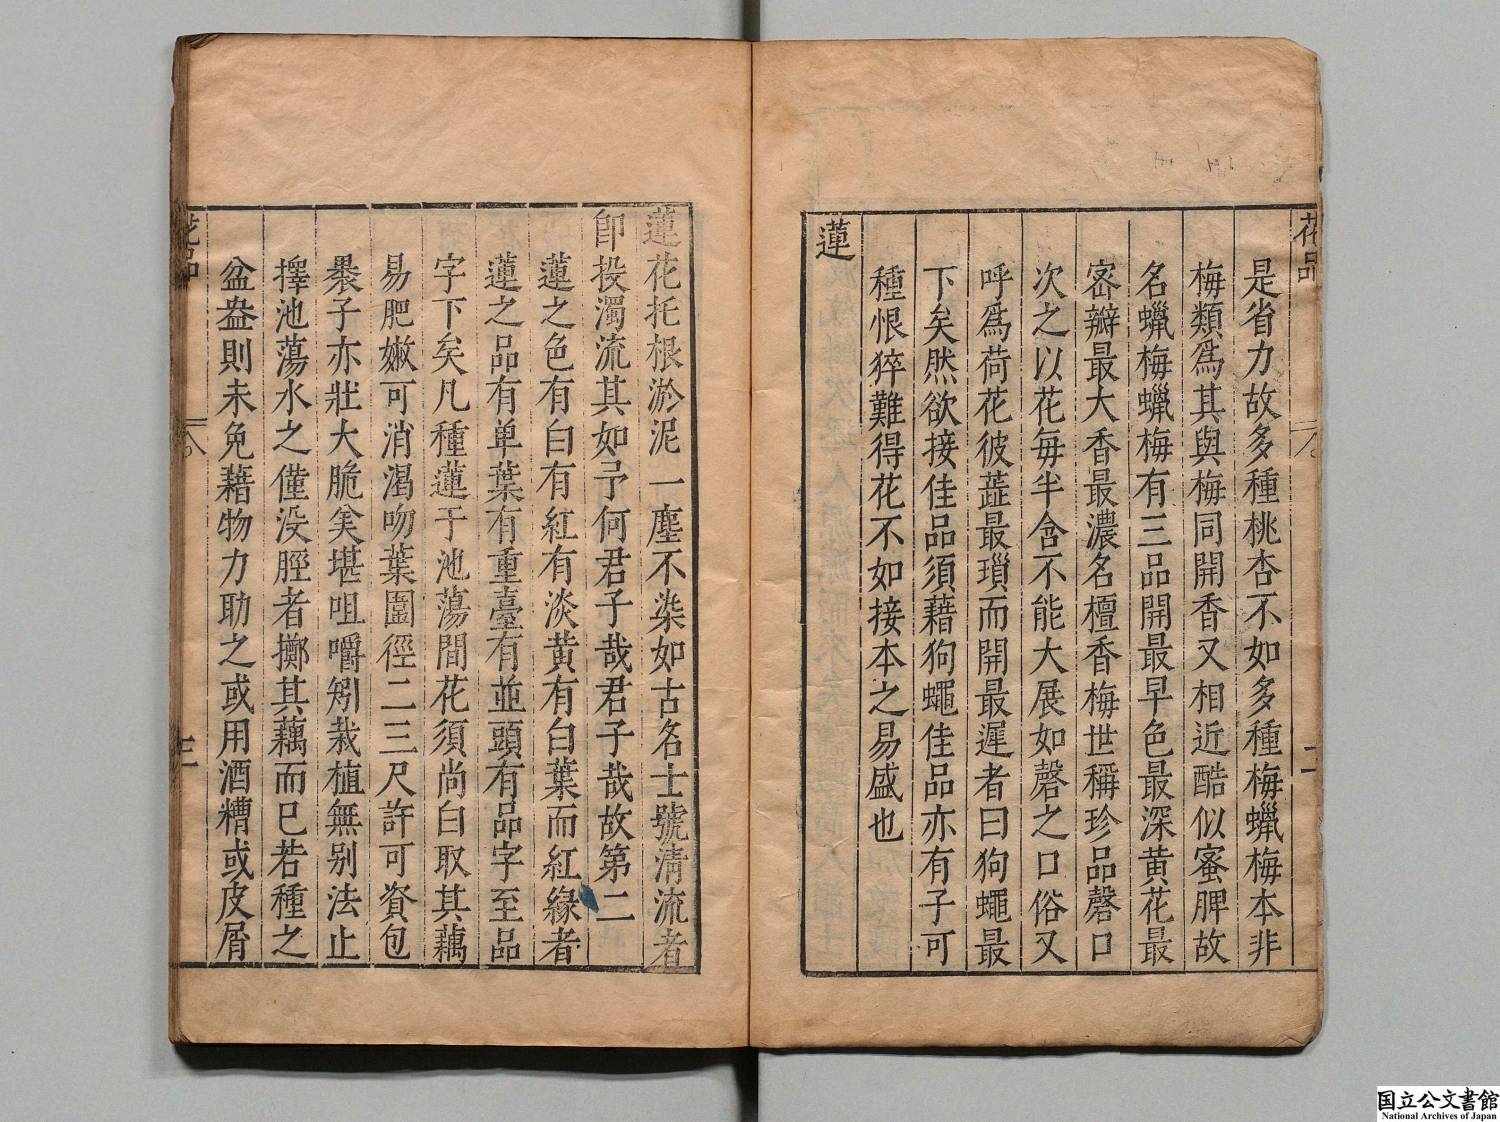 花品
二
是省力故多種桃杏不如多種梅蠟梅本非
梅類爲其與梅同開香又相近酷似蜜脾故
名蠟梅蠟梅有三品開最早色最深黄花最
宻瓣最大香最濃名檀香梅世稱珍品磬口
次之以花每半含不能大展如磬之口俗又
呼爲荷花彼葢最瑣而開最遲者曰狗蠅最
下矣然欲接佳品須藉狗蠅佳品亦有子可
種恨猝難得花不如接本之易盛也
蓮
蓮花托根淤泥一塵不染如古名士號清流者
卽投濁流其如予何君子哉君子哉故第二
蓮之色有白有紅有淡黄有白葉而紅緣者
蓮之品有单葉有重臺有並頭有品字至品
字下矣凡種蓮于池蕩間花須尚白取其藕
易肥嫩可消渴吻葉圍徑二三尺許可資包
褁子亦壯大脆美堪咀嚼矧栽植無别法止
擇池蕩水之僅没脛者擲其藕而已若種之
盆盎則未免藉物力助之或用酒糟或皮屑
花品
三
国立公文書館
National Archives of Japan